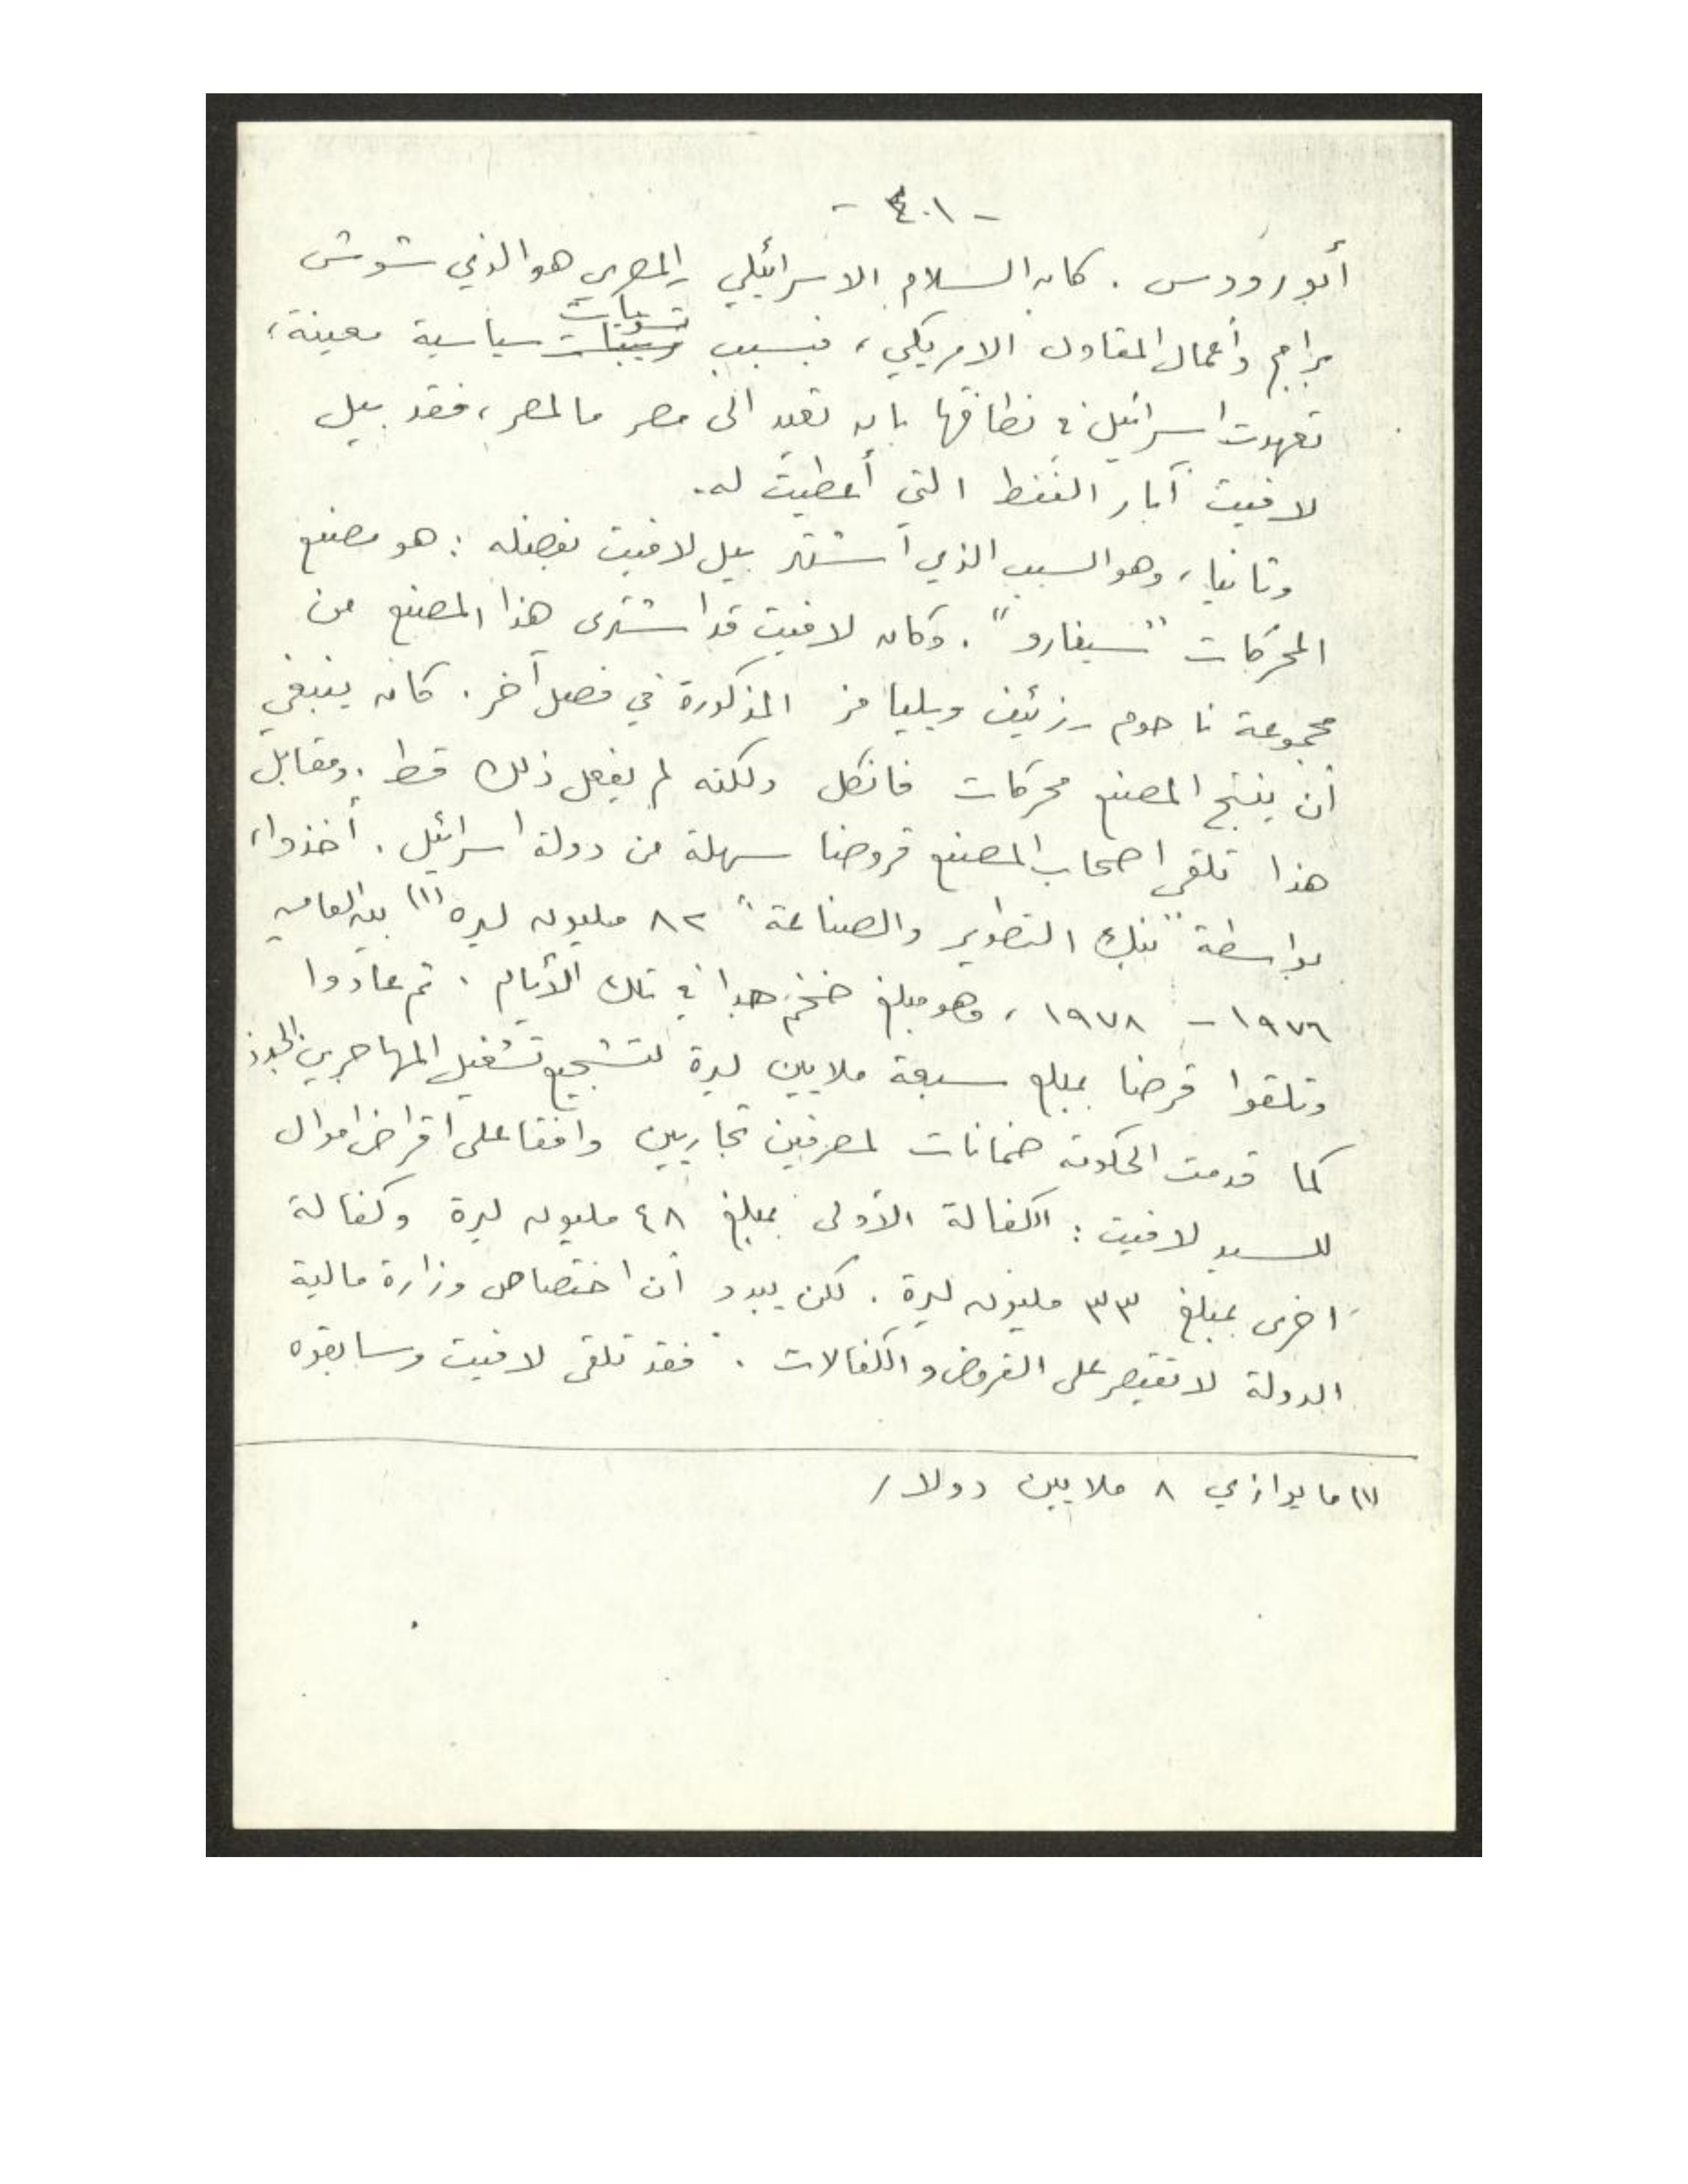 - ٤٠١ -
أبو رودس . كان السلام الاسرائيلي المصري هو الذي شوش
برامج وأعمال المقاول الامريكي ، فبسبب تسويات سياسية معينة ،
تعهدت اسرائيل في نطاقها بان تعيد الى مصر ما لمصر ، فقد بيل
لافيت آبار النفط التي أعطيت له .
وثانيا ، وهو السبب الذي اشتهر بيل لافيت بفضله : هو مصنع
المحركات "سيغارو" . وكان لافيت قد اشترى هذا المصنع من
مجموعة ناحوم رزئيف ويليامز المذكورة في فصل آخر . كان ينبغي
أن ينتج المصنع محركات فانكل ولكنه لم يفعل ذلك قط . ومقابل
هذا تلقى اصحاب المصنع قروضا سهلة من دولة اسرائيل . أخذوا ،
بواسطة "بنك التطوير والصناعة" ٨٢ مليون ليره (١) بين العامين
١٩٧٦ - ١٩٧٨ ، وهو مبلغ ضخم جدا في تلك الأيام . ثم عادوا
وتلقوا قرضا بمبلغ سبعة ملايين ليرة لتشجيع تشغيل المهاجرين الجدد
كما قدمت الحكومة ضمانات لمصرفين تجاريين وافقا على اقراض اموال
للسيد لافيت : الكفالة الأولى بمبلغ ٤٨ مليون ليرة وكفالة
اخرى بمبلغ ٣٣ مليون ليرة . لكن يبدو أن اختصاص وزارة مالية
الدولة لا تقتصر على القروض والكفالات . فقد تلقى لافيت وسابقوه
(١) ما يوازي ٨ ملايين دولار